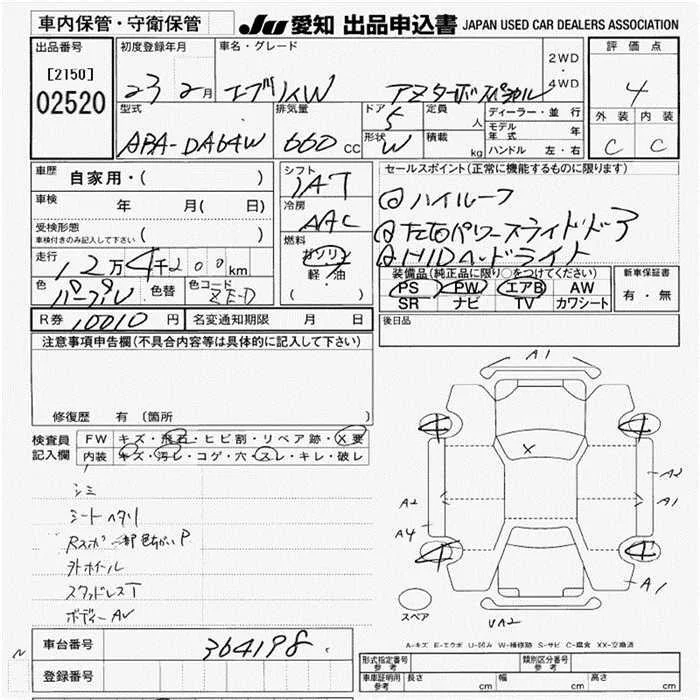 車内保管・守衛保管
JU 愛知 出品申込書 JAPAN USED CAR DEALERS ASSOCIATION
出品番号
[2150]
02520
初度登録年月
23 2月
車名・グレード
エブリィW
2WD
・
4WD
評価点
4
外装 内装
C C
型式
ABA-DA64W
排気量
660 CC
ドア 5
形状 W
定員 人
積載 kg
ディーラー・並行
モデル年式 年
ハンドル 左・右
車歴 自家用・( )
車検 年 月( 日)
受検形態
車検付きのみ記入して下さい ( )
走行 12万4千200km
色 パープル 色替 色コード ZE-D
シフト
IAT
冷房
AAC
燃料
ガソリン
軽・油
( )
セールスポイント(正常に機能するものに限ります)
① ハイルーフ
② 左右パワースライドドア
③ HIDヘッドライト
装備品(純正品に限り○をつけてください)
PS PW エアB AW
SR ナビ TV カワシート
新車保証書
有・無
R券 10010 円 名変通知期限 月 日
後日品
注意事項申告欄(不具合内容等は具体的に記入して下さい)
修復歴 有 〔箇所 〕
検査員
記入欄
FW キズ・飛石・ヒビ割・リペア跡・X要
内装 キズ・汚レ・コゲ・穴・スレ・キレ・破レ
シミ
シートヘタリ
外ホイール
スタッドレスT
ボディーAV
A1
X
A2
A1
A2
A4
A1
UA2
スペア
A-キズ E-エクボ U-凹み W-補修跡 S-サビ C-腐食 XX-交換済
車台番号 364198
登録番号
形式指定番号
参考
類別区分番号
参考
車庫証明用
参考
長さ cm 幅 cm 高さ cm